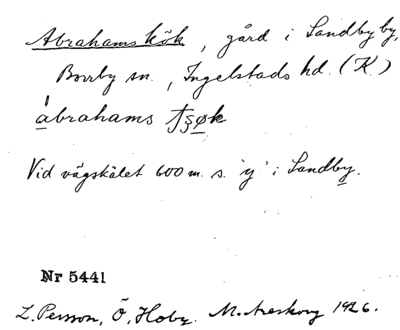 Abrahams kök, gård i Sandby by,
Borrby sn., Ingelstads hd. (K.)
ábrahams tʂøk
Vid vägskälet 600 m. s. 'y' i Sandby.
Nr 5441
L. Persson, Ö. Hoby. M. Areskog 1926.